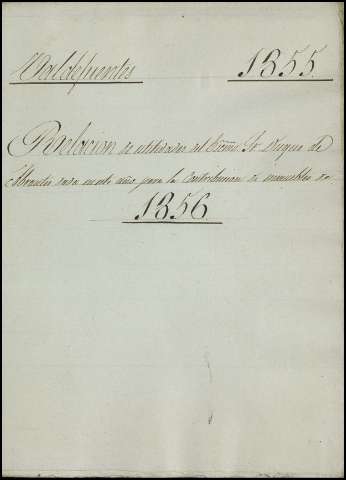 Valdefuentes 1855.
Relacion de utilidades del Excmo Sr. Duque de
Abrantes dada en este año para la Contribucion de inmuebles de
1856.